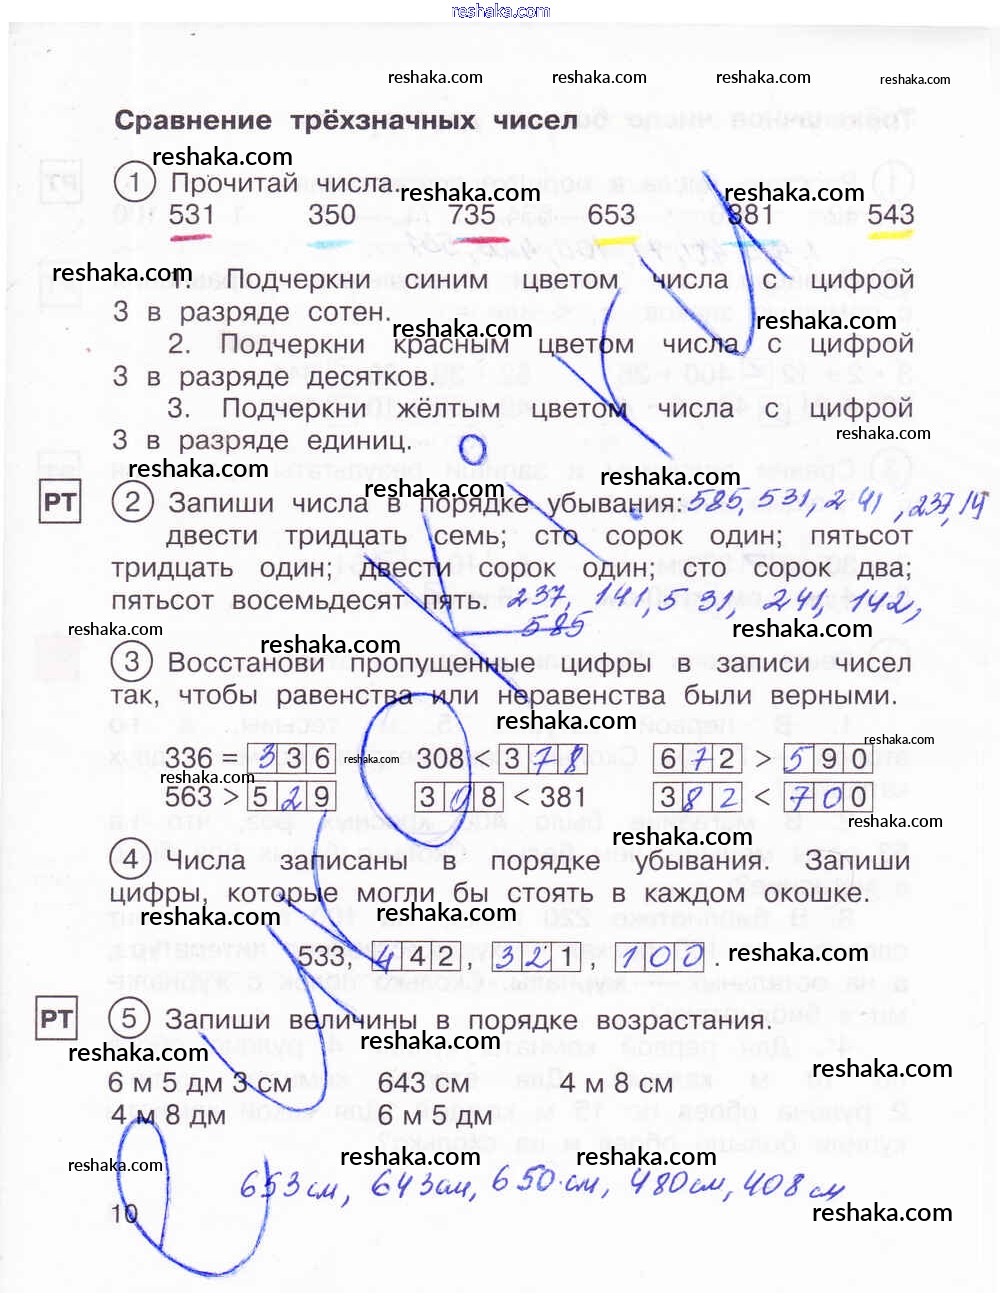 reshaka.com
reshaka.com reshaka.com reshaka.com reshaka.com
Сравнение трёхзначных чисел
reshaka.com
1 Прочитай числа.
reshaka.com reshaka.com
531 350 735 653 381 543
reshaka.com
1. Подчеркни синим цветом числа с цифрой
3 в разряде сотен.
reshaka.com reshaka.com
2. Подчеркни красным цветом числа с цифрой
3 в разряде десятков.
3. Подчеркни жёлтым цветом числа с цифрой
reshaka.com
3 в разряде единиц.
reshaka.com reshaka.com reshaka.com
РТ 2 Запиши числа в порядке убывания: 585, 531, 241, 237, 14
двести тридцать семь; сто сорок один; пятьсот
тридцать один; двести сорок один; сто сорок два;
пятьсот восемьдесят пять. 237, 141, 531, 241, 142,
585
reshaka.com reshaka.com reshaka.com
3 Восстанови пропущенные цифры в записи чисел
так, чтобы равенства или неравенства были верными.
reshaka.com reshaka.com
336 = 336 reshaka.com 308 < 378 672 > 590
reshaka.com
563 > 529 308 < 381 382 < 700
reshaka.com reshaka.com
4 Числа записаны в порядке убывания. Запиши
цифры, которые могли бы стоять в каждом окошке.
reshaka.com reshaka.com reshaka.com
533, 442, 321, 100. reshaka.com
РТ 5 Запиши величины в порядке возрастания.
reshaka.com reshaka.com reshaka.com
6 м 5 дм 3 см 643 см 4 м 8 см
4 м 8 дм 6 м 5 дм
reshaka.com reshaka.com reshaka.com
653 см, 643 см, 650 см, 480 см, 408 см
10 reshaka.com